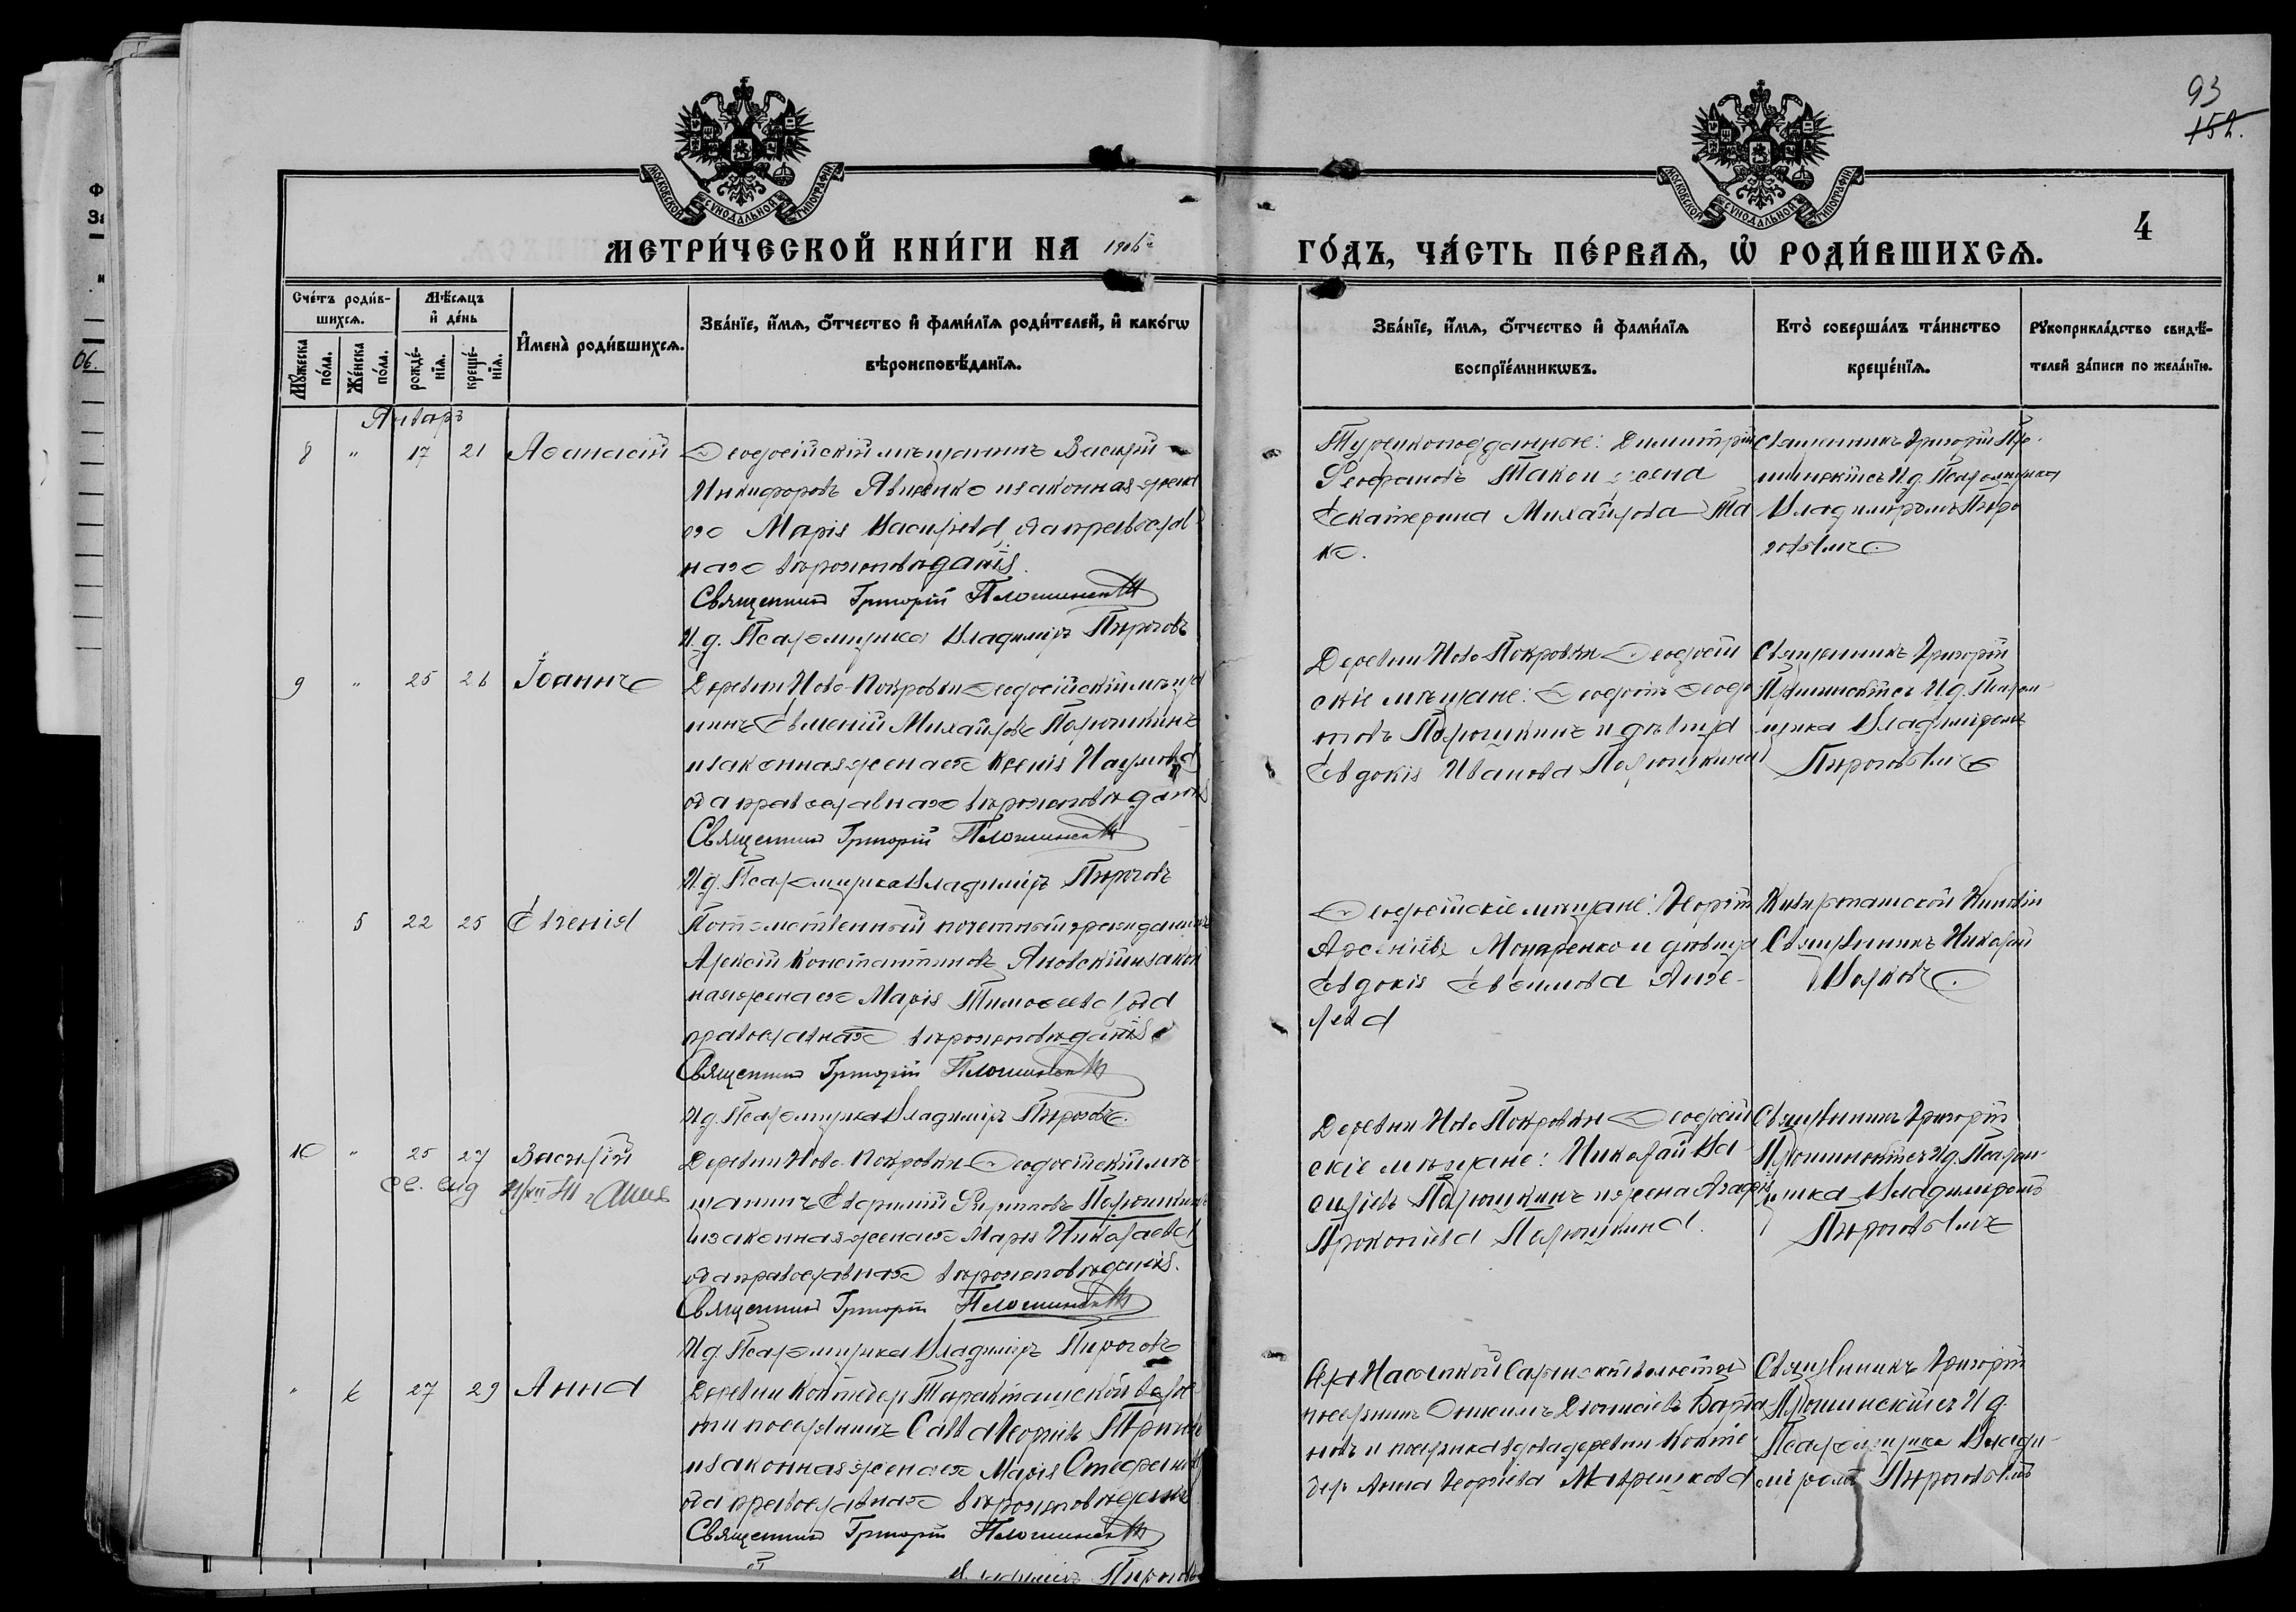 93
152.
МОСКОВСКОЙ СѴНОДАЛЬНОЙ ТИПОГРАФІИ
МОСКОВСКОЙ СѴНОДАЛЬНОЙ ТИПОГРАФІИ
МЕТРИ́ЧЕСКОЙ КНИ́ГИ НА 1906
ГО́ДЪ, ЧА́СТЬ ПЕ́РВАѦ, Ѡ РОДИ́ВШИХСѦ.
4
Сче́тъ роди́в-
шихсѧ.
Мꙋ́жеска по́ла.
Же́нска по́ла.
Мѣ́сѧцъ
и҆ де́нь
рожде́-
нїѧ.
креще́-
нїѧ.
И҆мена̀ роди́вшихсѧ.
Зва́нїе, и҆́мѧ, ѻ҆́тчество и҆ фами́лїѧ роди́телей, и҆ како́гѡ
вѣроисповѣ́данїѧ.
Зва́нїе, и҆́мѧ, ѻ҆́тчество и҆ фами́лїѧ
воспрїе́мникѡвъ.
Кто̀ соверша́лъ та́инство
креще́нїѧ.
Рꙋкоприкла́дство свидѣ́-
телей за́писи по жела́нїю.
06.
Январь
8 " 17 21 Аѳанасій
Ѳеодосійскій мѣщанинъ Василій
Никифоровъ Явленко и законная жена
его Марія Васильева, оба православ
наго вѣроисповѣданія.
Священникъ Григорій
И.д. Псаломщика Владиміръ Пироговъ
Турецкоподданные: Димитрій
Феофановъ Тако и жена
Екатерина Михайлова Та
ко.
Священникъ Григорій
И.д. Псаломщика
Владиміромъ Пиро
говымъ.
9 " 25 26 Іоаннъ
Деревни Ново-Покровки Ѳеодосійскій мѣща
нинъ Евменій Михайловъ Полюшкинъ
и законная жена его Ксенія Наумова
оба православнаго вѣроисповѣданія
Священникъ Григорій
И.д. Псаломщика Владиміръ Пироговъ
Деревни Ново Покровки Ѳеодосій
скіе мѣщане: Ѳеодотъ Ѳеодо
товъ Полюшкинъ и дѣвица
Евдокія Иванова Полюшкина
Священникъ Григорій
И.д. Псалом
щика Владиміромъ
Пироговымъ
5 22 25 Евгенія
Потомственный почетный гражданинъ
Алексій Константиновъ Яновскій и закон
ная жена его Марія Тимоѳеева оба
православнаго вѣроисповѣданія.
Священникъ Григорій
И.д. Псаломщика Владиміръ Пироговъ.
Ѳеодосійскіе мѣщане: Георгій
Арсеніевъ и дѣвица
Евдокія Евѳимова Анге-
лева
Священникъ Николай
Волковъ.
10 " 25 27 Василій
Деревни Ново-Покровки Ѳеодосійскій мѣ-
щанинъ Филиповъ Полюшкинъ
и законная жена его Марія Николаева
оба православнаго вѣроисповѣданія.
Священникъ Григорій
И.д. Псаломщика Владиміръ Пироговъ
Деревни Ново Покровки Ѳеодосій
скіе мѣщане: Николай Ва-
сильевъ Полюшкинъ и жена Агафія
Прокопіева Полюшкина.
Священникъ Григорій
И.д. Псалом
щика Владиміромъ
Пироговымъ
" 6 27 29 Анна
Деревни Коктебель Таракташской волос
ти поселянинъ Савва Георгіевъ
и законная жена его Марія
оба православнаго вѣроисповѣданія
Священникъ Григорій
Владиміръ Пироговъ
поселянинъ Діонисіевъ
новъ и поселянка вдова деревни Кокте
бель Анна Георгіева
Священникъ Григорій
И.д.
Псаломщика Влади-
міромъ Пироговымъ